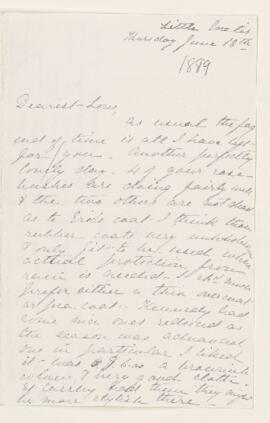 Little
Thursday June 18th
1889
Dearest Lou,
as usual the fag
end of time is all I have left
for you. Another perfectly
lovely day. 4 of your rose
bushes are doing fairly well
& the two others are not dead
as to Eric's coat I think those
rubber coats very unwholesome
& only fit to be used when
actual protection from
rain is needed. I shd much
prefer either a thin overcoat
or pea coat. Kennedy had
some nice ones reduced as
the season was advanced
one in particular I liked
it was $ as a brownish
colour & very good cloth.
If Carsley had them they might
be more stylish there